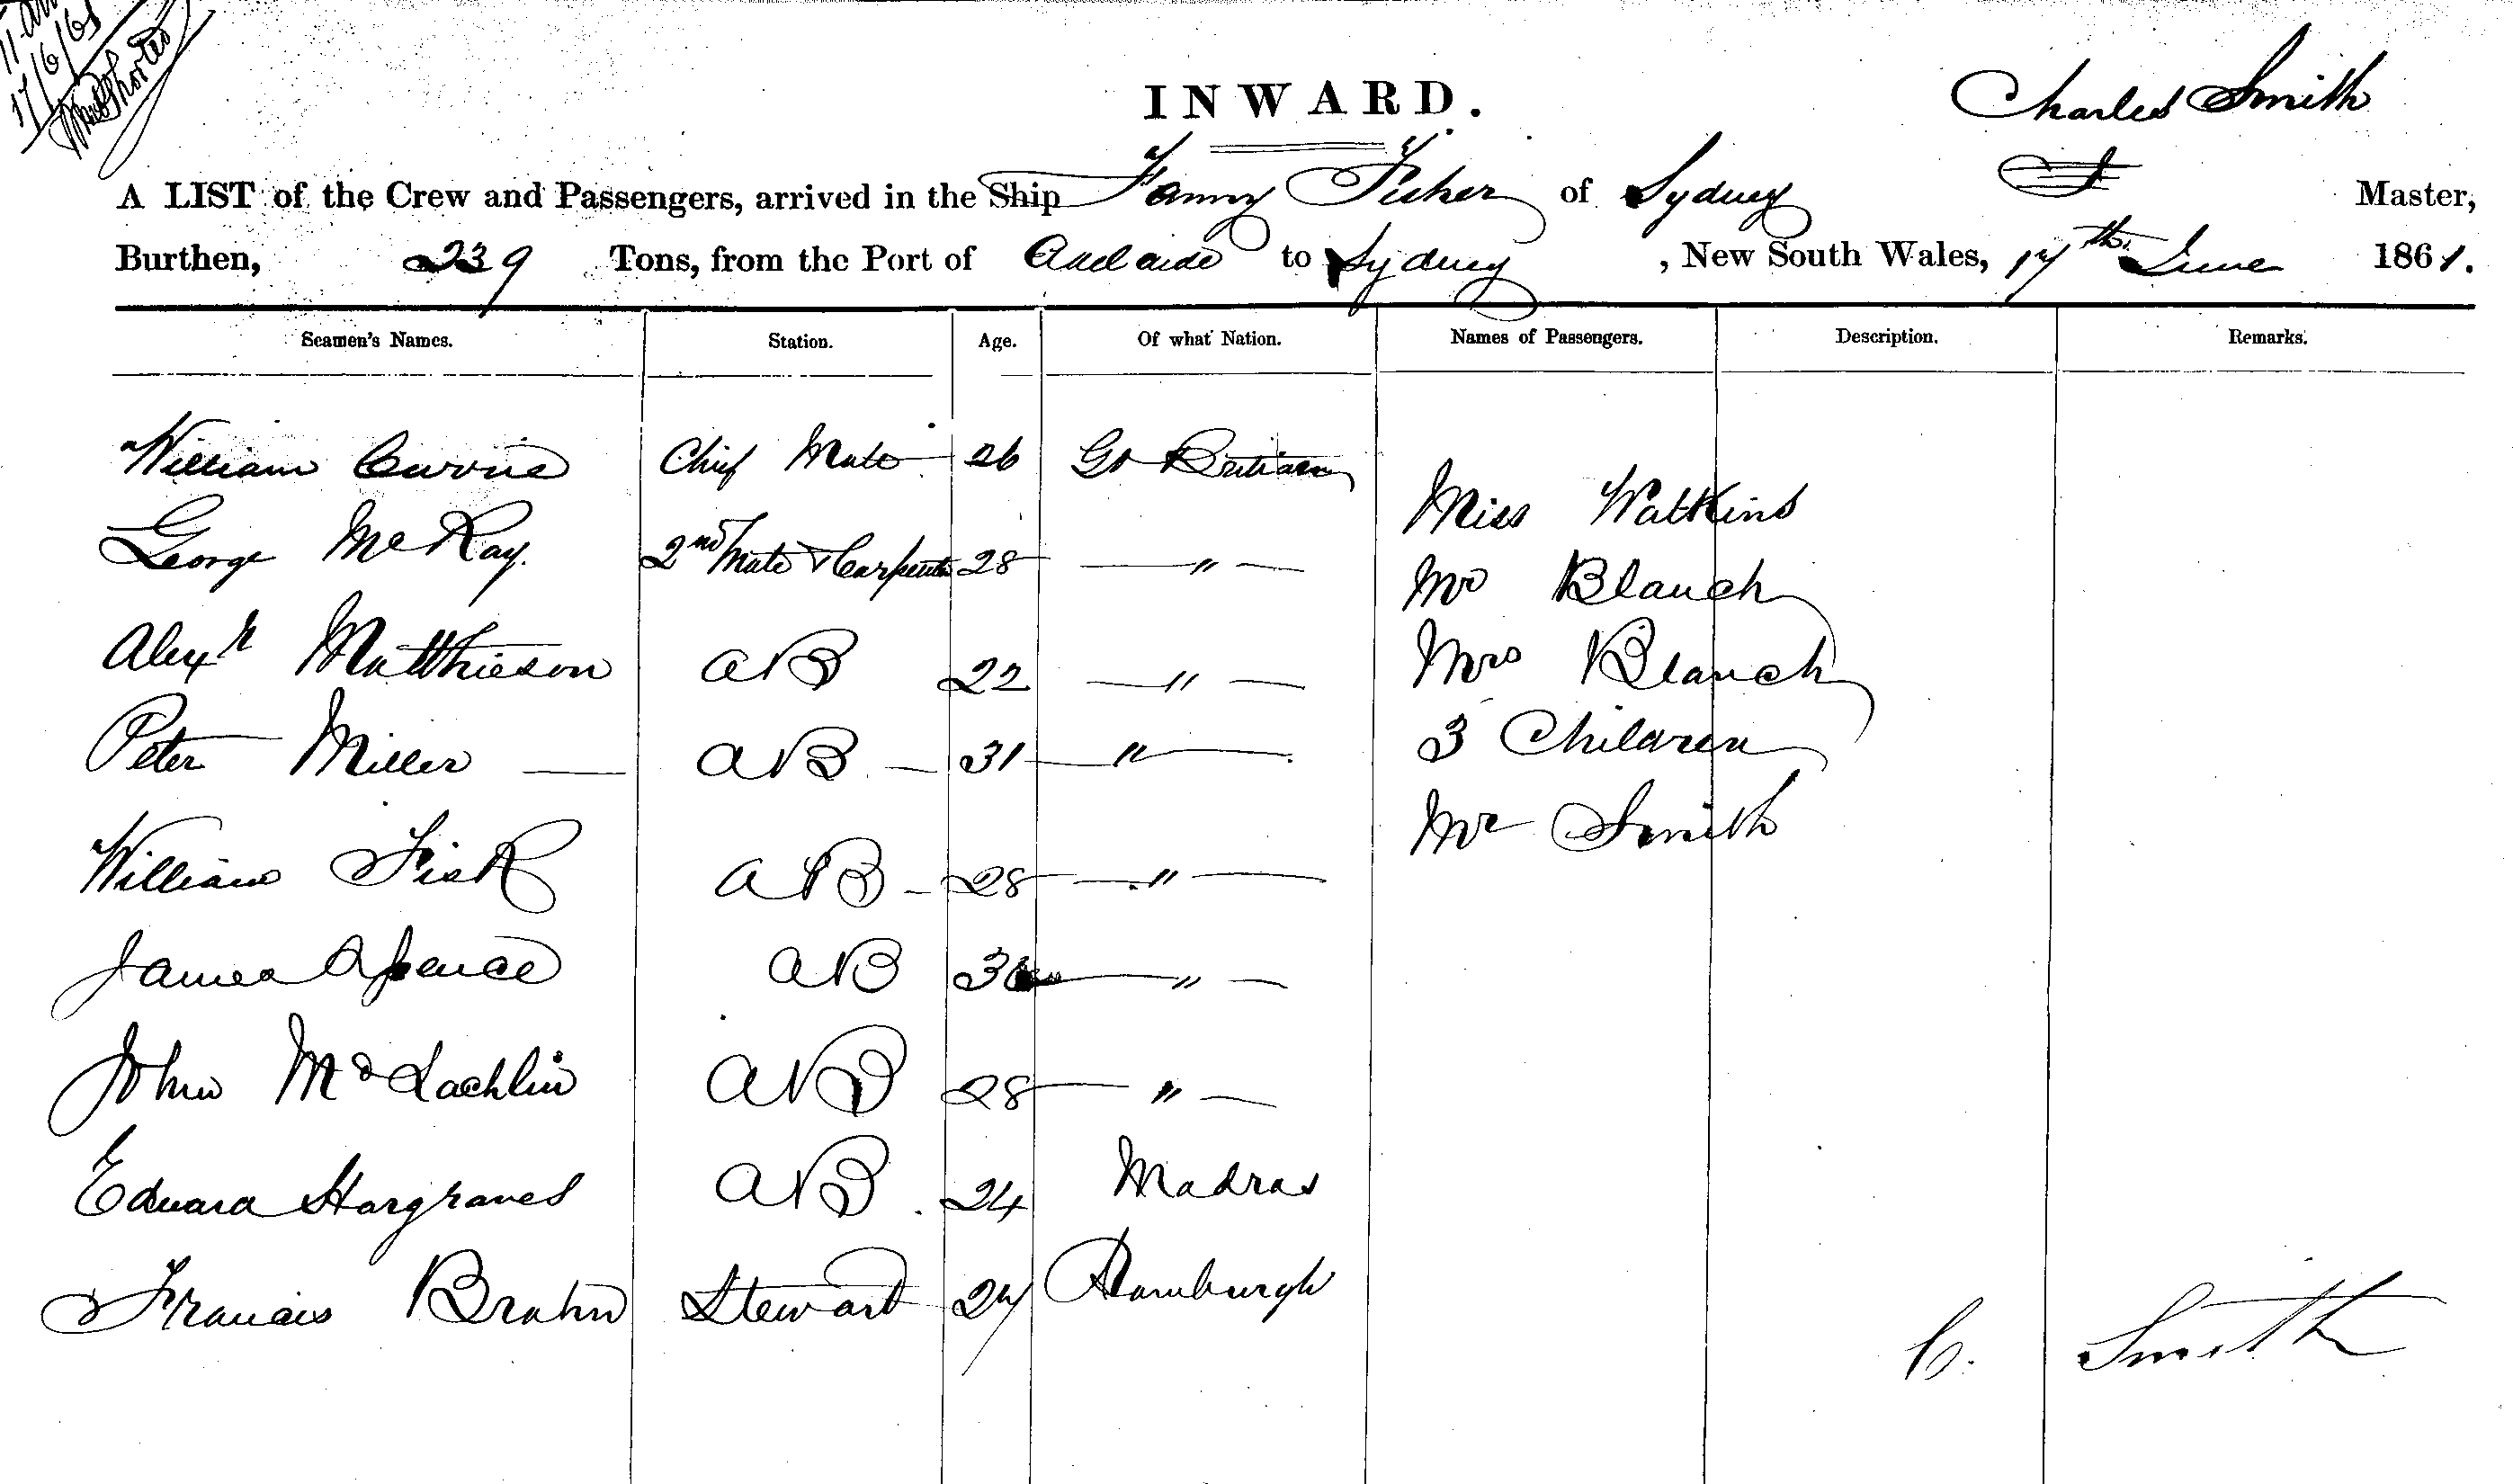 11 am
17/6/61
INWARD.
Charles Smith
A LIST of the Crew and Passengers, arrived in the Ship Fanny Fisher of Sydney Master,
Burthen, 239 Tons, from the Port of Adelaide to Sydney, New South Wales, 17th June 1861.
Seamen's Names. Station. Age. Of what Nation. Names of Passengers. Description. Remarks.
William Currie Chief Mate 26 Gt Britian
Miss Watkins
George McKay. 2nd Mate & Carpenter 28 — " —
Mr Blanch
Alexr Matthieson AB 22 — " —
Mrs Blanch
Peter Miller — AB — 31 — " —
3 Children
Mr Smith
William Fisk AB — 28 — " —
James Spence AB — " —
John McLachlin AB 28 — " —
Edward Hargraves AB 24 Madras
Francis Brahn Stewart 27 Hamburgh
C. Smith